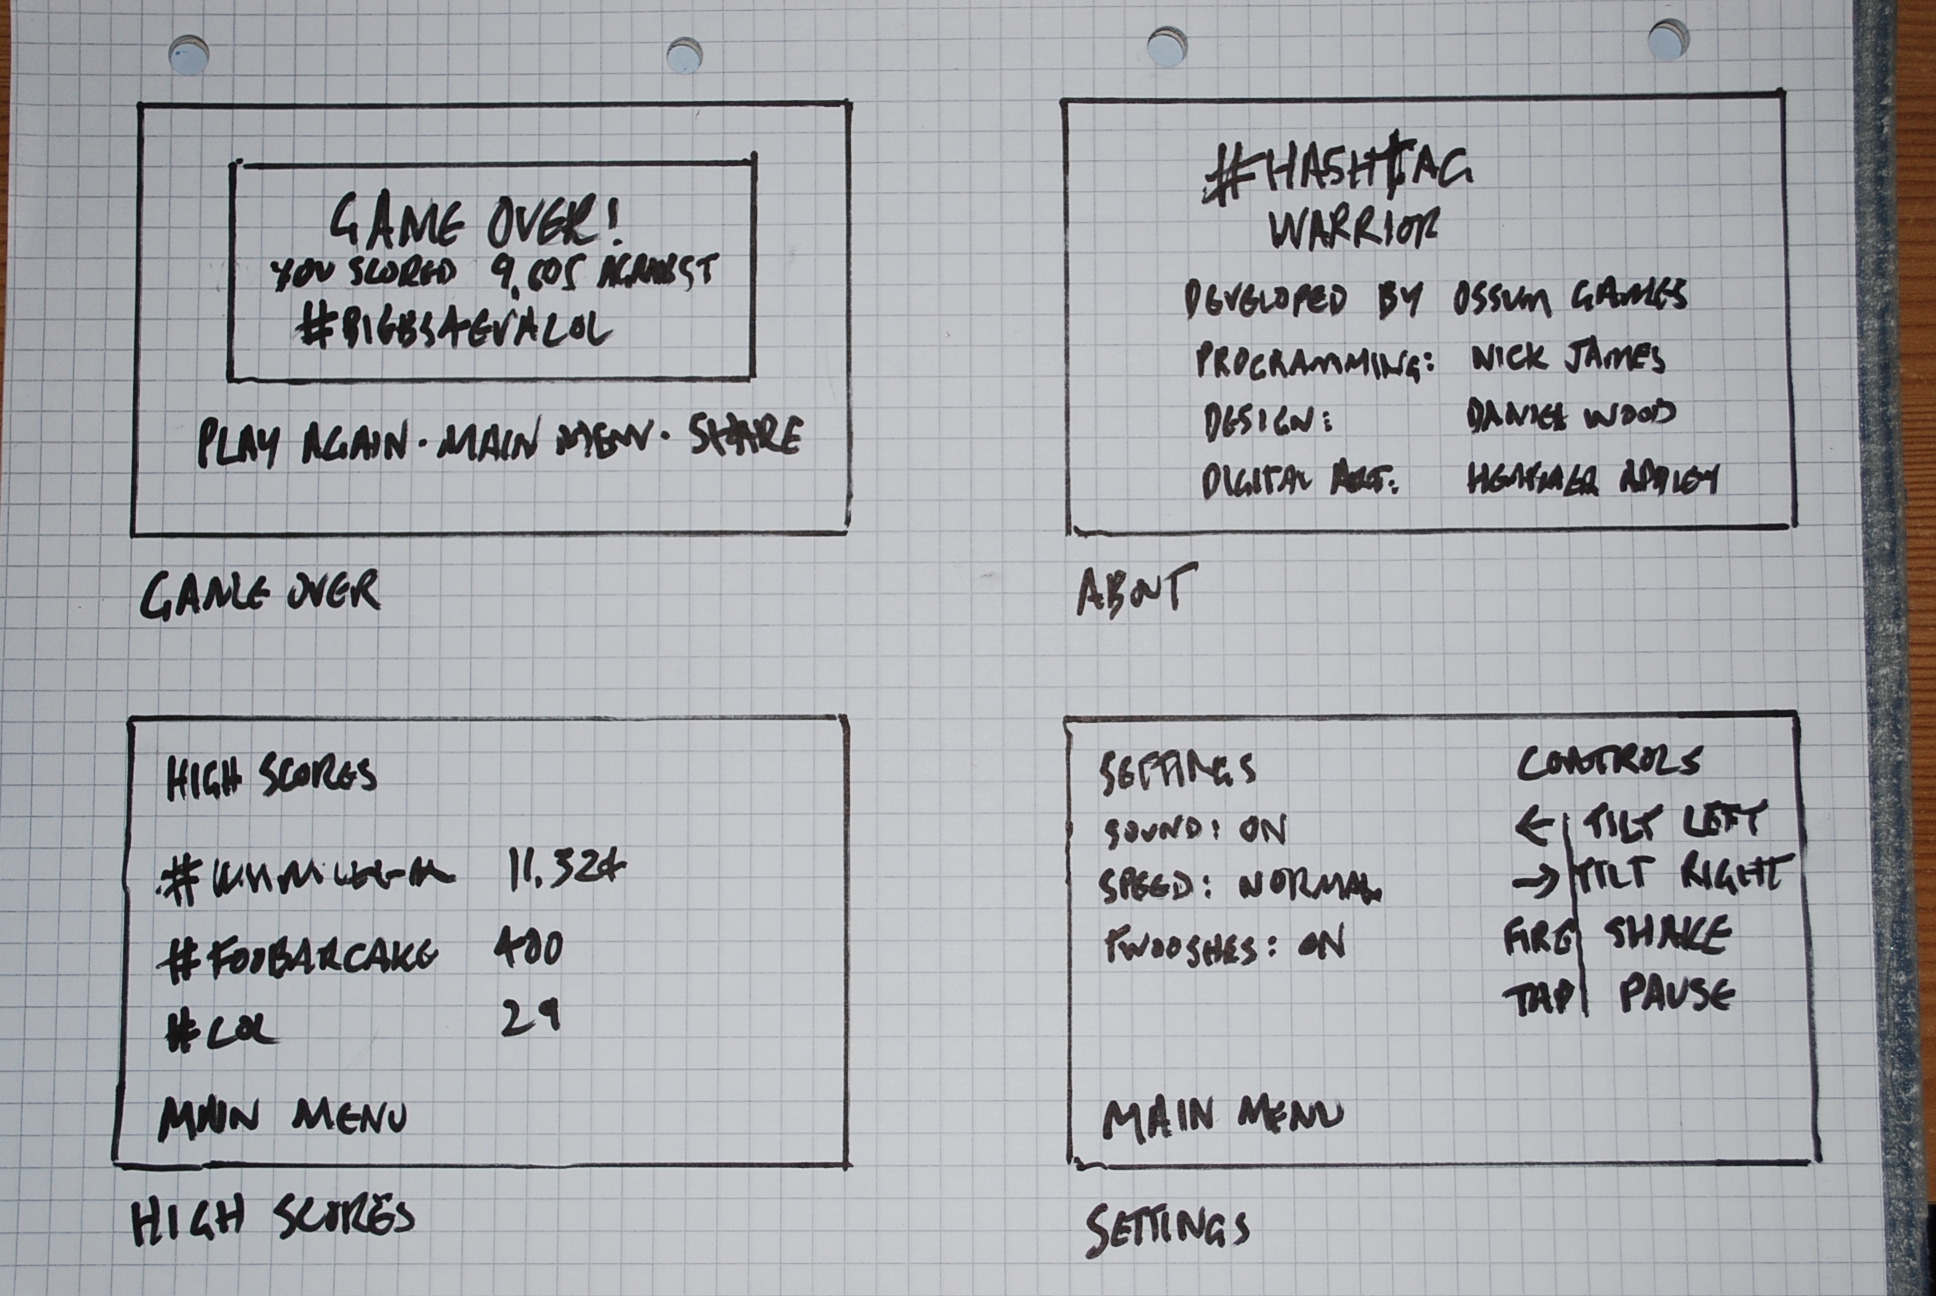 GAME OVER!
YOU SCORED 9,605 AGAINST
#BIEBS4EVALOL
PLAY AGAIN · MAIN MENU · SHARE
GAME OVER
#HASHTAG
WARRIOR
DEVELOPED BY OSSUM GAMES
PROGRAMMING: NICK JAMES
DESIGN: DANIEL WOOD
DIGITAL ART: HEATHER
ABOUT
HIGH SCORES
11,324
#FOOBARCAKE 400
#LOL 29
MAIN MENU
HIGH SCORES
SETTINGS
SOUND: ON
SPEED: NORMAL
TWOOSHES: ON
CONTROLS
← TILT LEFT
→ TILT RIGHT
FIRE SHAKE
TAP PAUSE
MAIN MENU
SETTINGS